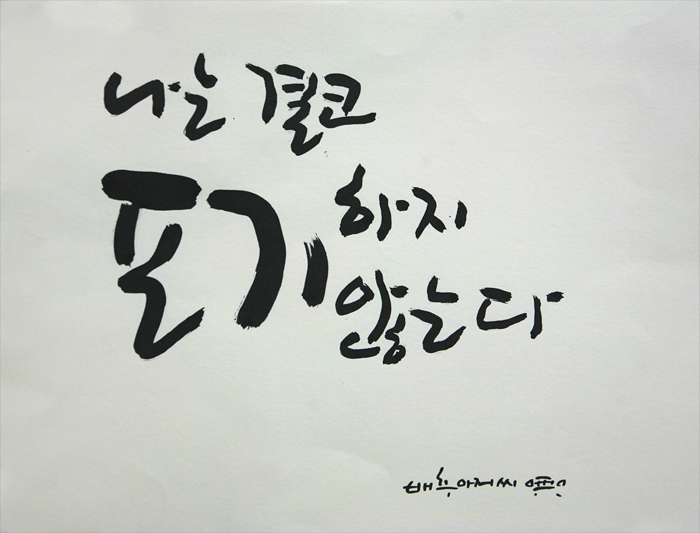 나는 결코
포기 하지
않는다
배추아저씨